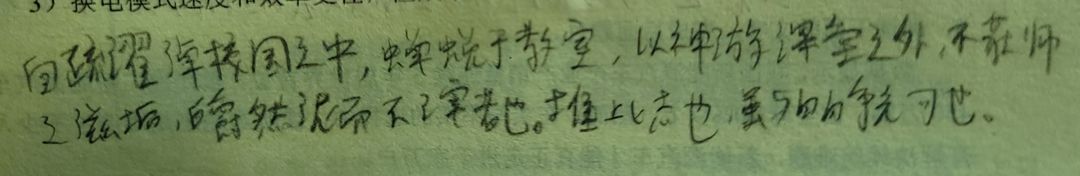 3）换电模式速度和效率更
自疏濯淖校园之中，蝉蜕于教室，以神游课堂之外，不获师
之滋垢，皭然泥而不滓者也。推此志也，虽与日月争光可也。